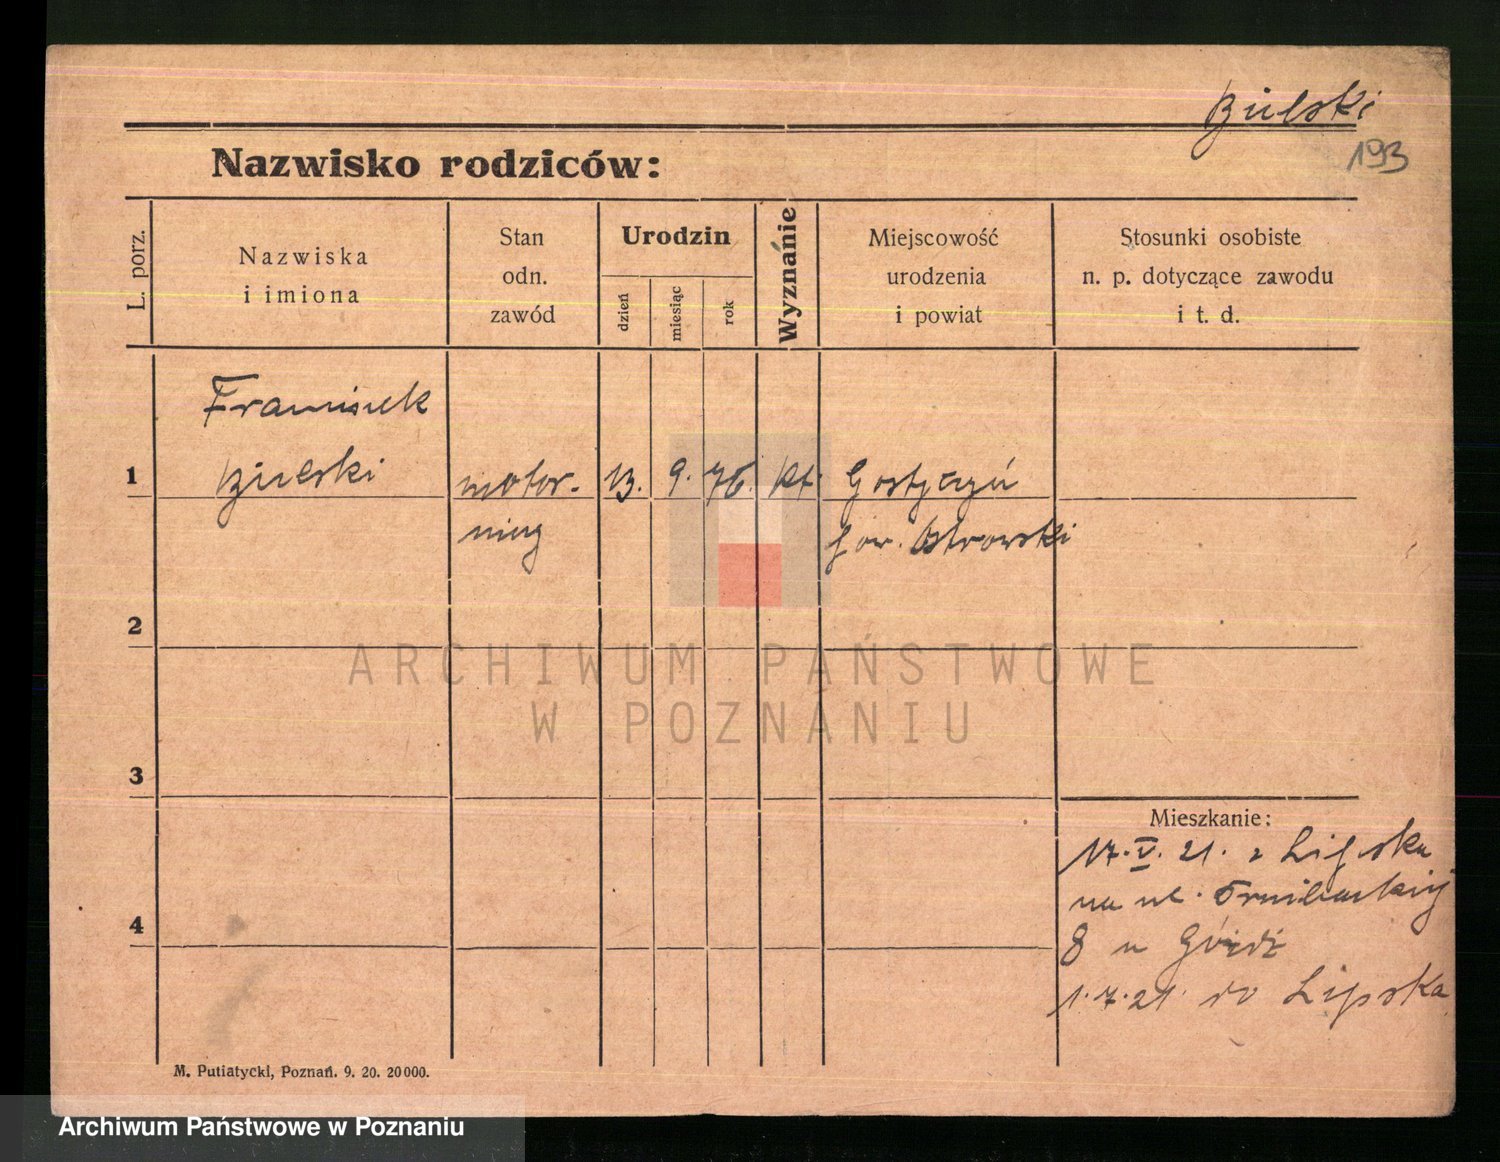 Bielski
193
Nazwisko rodziców:
L. porz.
Nazwiska
i imiona
Stan
odn.
zawód
Urodzin
dzień
miesiąc
rok
Wyznanie
Miejscowość
urodzenia
i powiat
Stosunki osobiste
n. p. dotyczące zawodu
i t. d.
Franciszek
1 Bielski motor- 13. 9. 76. kt. Gostyczyń
niczy pow. Ostrowski
2
3
4
Mieszkanie:
17.V.21. z Lipska
na ul.
8 u Góźdź
1.7.21. do Lipska
M. Putiatycki, Poznań. 9. 20. 20000.
ARCHIWUM PAŃSTWOWE
W POZNANIU
Archiwum Państwowe w Poznaniu